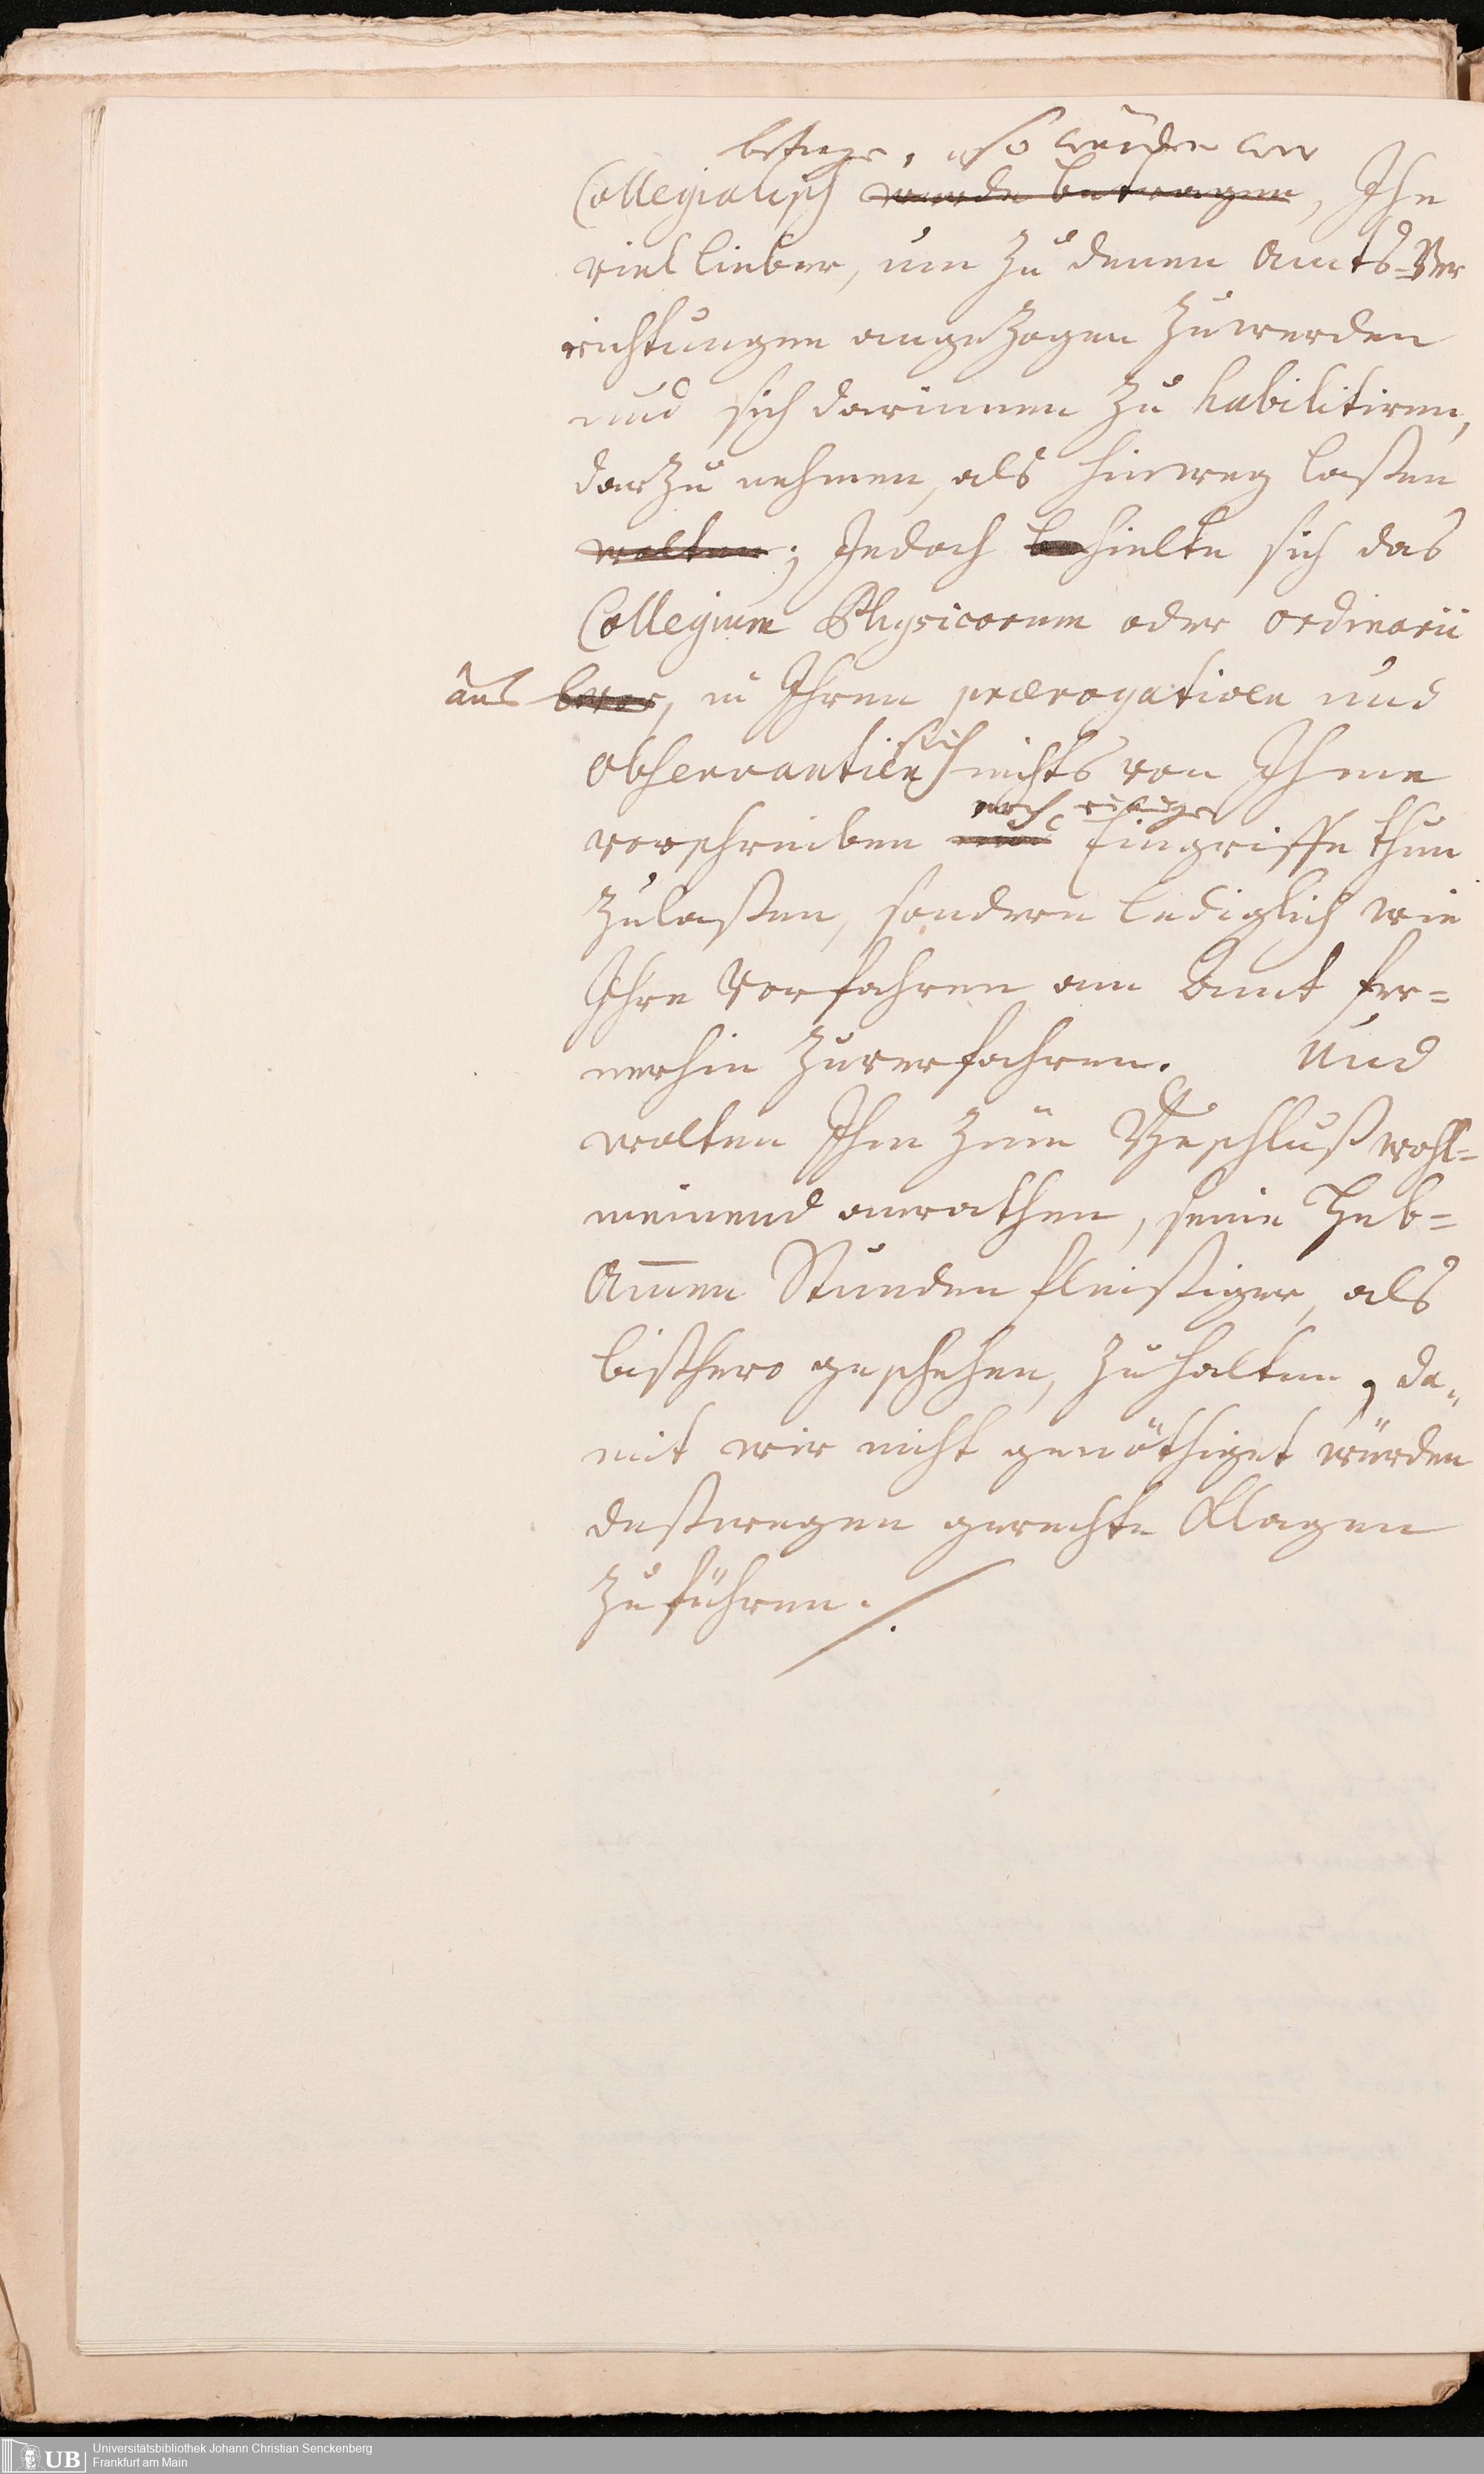 betrage, so würden wir
Collegialisch würde betragen, Ihn
viel lieber, um zu denen Amts-Ver
richtungen angezogen zu werden
und sich darinnen zu habilitiren,
darzu nehmen, als hinweg laßen
wolten; Jedoch behielte sich das
Collegium Physicorum oder ordinarii
aus bevor, in Ihren prærogativen und
observantien sich nichts von Ihme
noch einige
vorschreiben und Eingriffe thun
zulaßen, sondern lediglich wie
Ihre Vorfahren am Amt fer=
nerhin zuverfahren. Und
wolten Ihm zum Beschluß wohl=
meinend anrathen, seine Heb=
Am̄en Stunden fleißiger, als
bißhero geschehen, zu halten, da„
mit wir nicht genöthiget würden
deßwegen gerechte Klagen
zu führen.
UB Universitätsbibliothek Johann Christian Senckenberg
Frankfurt am Main